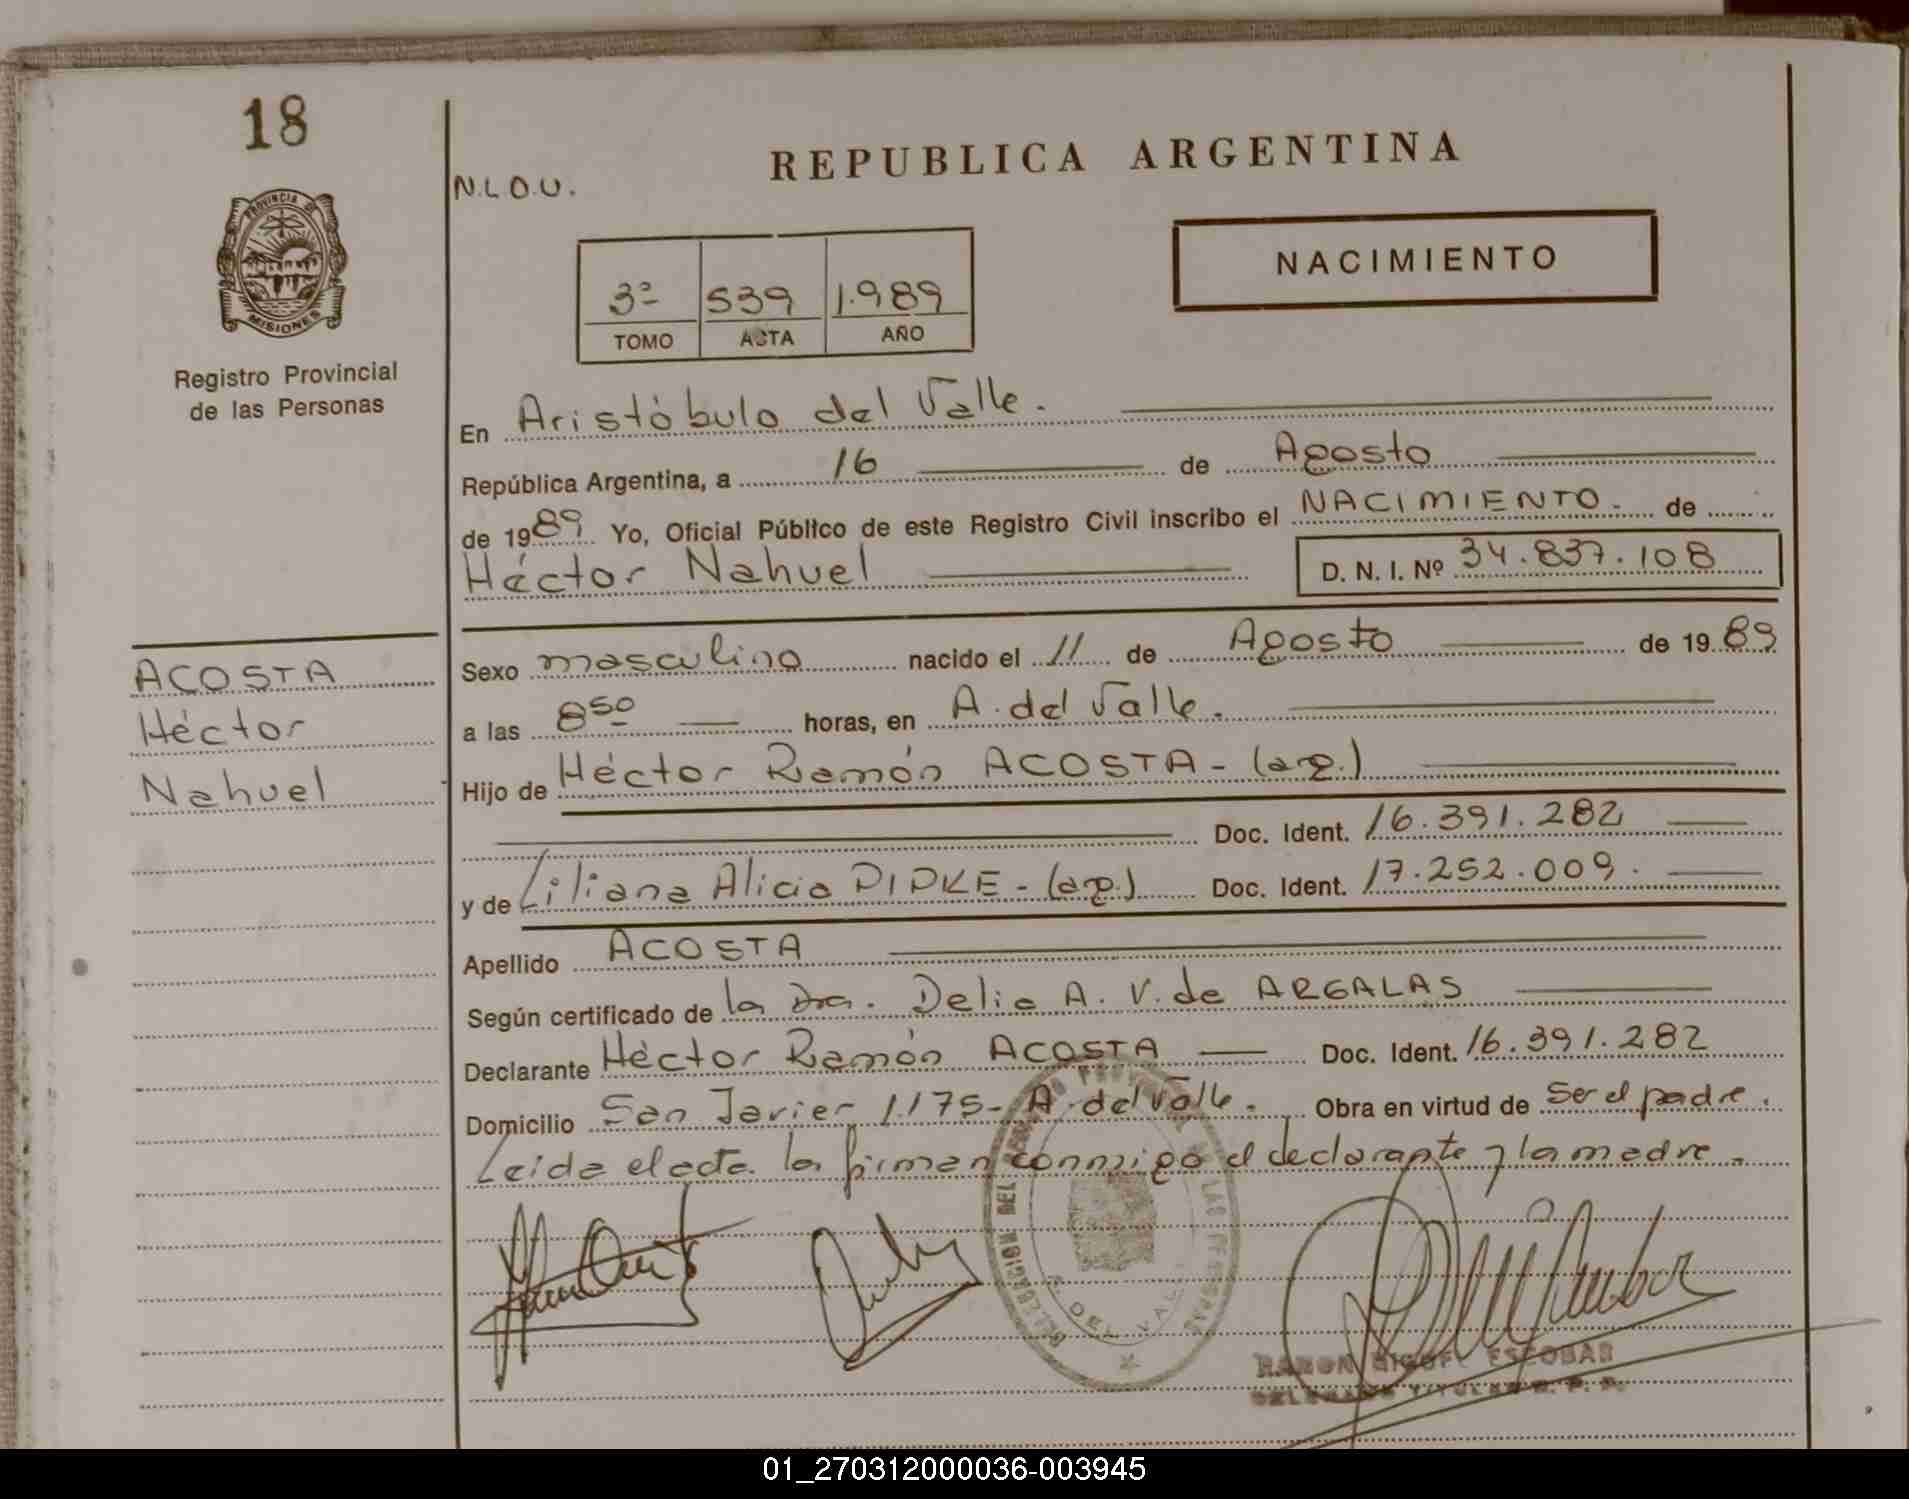 18
PROVINCIA DE
MISIONES
Registro Provincial
de las Personas
ACOSTA
Héctor
Nahuel
N.L.O.U.
REPUBLICA ARGENTINA
NACIMIENTO
3º 539 1.989
TOMO ACTA AÑO
En Aristóbulo del Valle.
República Argentina, a 16 de Agosto
de 1989 Yo, Oficial Público de este Registro Civil inscribo el NACIMIENTO. de
Héctor Nahuel D. N. I. Nº 34.837.108
Sexo masculino nacido el 11 de Agosto de 1989
a las 8 50 horas, en A. del Valle.
Hijo de Héctor Ramón ACOSTA - (arg.)
Doc. Ident. 16.391.282
y de Liliana Alicia PIPKE - (arg.) Doc. Ident. 17.252.009.
Apellido ACOSTA
Según certificado de la Dra. Delia A. V. de ARGALAS
Declarante Héctor Ramón ACOSTA Doc. Ident. 16.391.282
Domicilio San Javier 1.175- A. del Valle. Obra en virtud de ser el padre.
Leida el acta. la firman conmigo el declarante y la madre.
DELEGACION DEL REGISTRO PROVINCIAL DE LAS PERSONAS
A. DEL VALLE
RAMON MIGUEL ESCOBAR
DELEGADO TITULAR R. P. P.
01_270312000036-003945